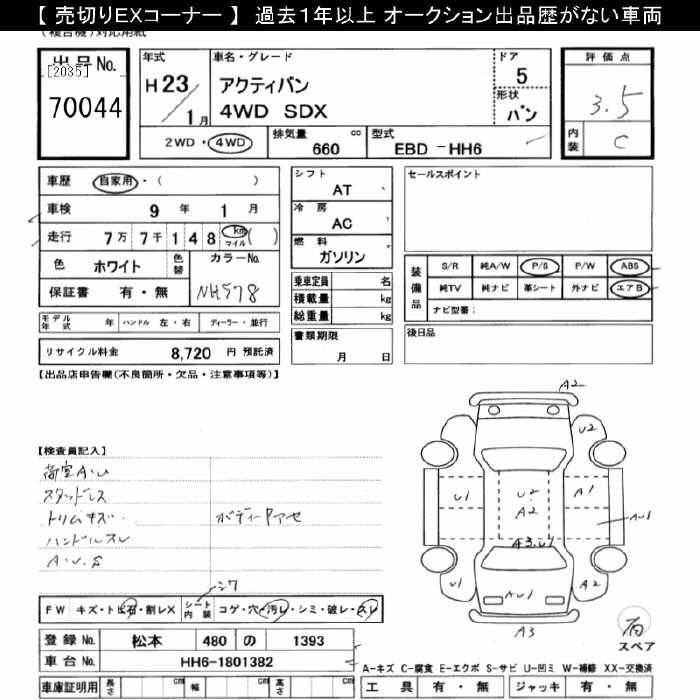 【 売切りEXコーナー 】 過去１年以上 オークション出品歴がない車両
(複合機)対応用紙
出品No.
[2035]
70044
年式
H 23 / 1月
車名・グレード
アクティバン
4WD SDX
ドア
5
形状
バン
評価点
3.5
内装
C
2WD・4WD
排気量
660 cc
型式
EBD-HH6
車歴 自家用・( )
車検 9 年 1 月
走行 7万 7千 1 4 8 km マイル ( )
色 ホワイト 色替 カラーNo.
保証書 有・無 NH578
モデル年式 年 ハンドル 左・右 ディーラー・並行
リサイクル料金 8,720 円 預託済
シフト
AT
冷房
AC
燃料
ガソリン
乗車定員 名
積載量 kg
総重量 kg
書類期限
月 日
セールスポイント
装備品
S/R 純A/W P/S P/W ABS
純TV 純ナビ 革シート 外ナビ エアB
ナビ型番:
後日品
【出品店申告欄(不良箇所・欠品・注意事項等)】
【検査員記入】
荷室A・U
スタッドレス
トリムキズ
ハンドルスレ
A・U・S
ボディーワアセ
シワ
FW キズ・ト・飛石・割レX シート内装 コゲ・穴・汚レ・シミ・破レ・スレ
登録No. 松本 480 の 1393
車台No. HH6-1801382
車庫証明用 長さ cm 幅 cm 高さ cm
A2
U2
U1
U2
A2
A1
AU1
A3.U1
U1
AU1
A2
A3
スペア
A-キズ C-腐食 E-エクボ S-サビ U-凹ミ W-補修 XX-交換済
工具 有・無 ジャッキ 有・無